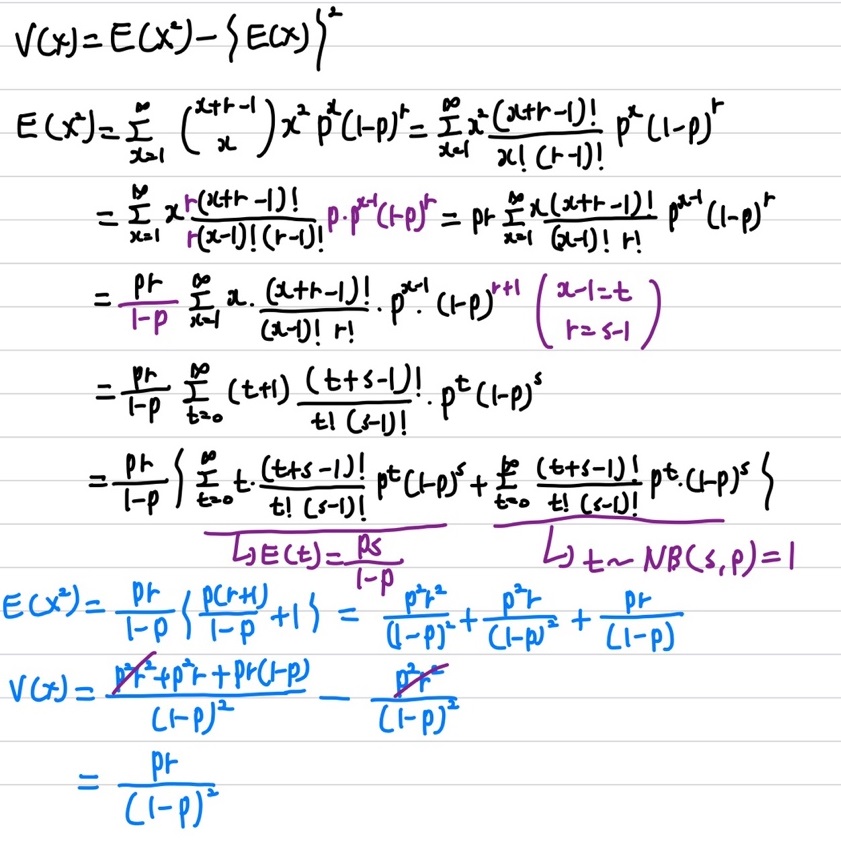 V(x) = E(x²) - {E(x)}²
E(x²) = \sum_{x=1}^{∞} \binom{x+r-1}{x} x² p^x (1-p)^r = \sum_{x=1}^{∞} x² \frac{(x+r-1)!}{x! (r-1)!} p^x (1-p)^r
= \sum_{x=1}^{∞} x \frac{r(x+r-1)!}{r(x-1)! (r-1)!} p · p^{x-1} (1-p)^r = pr \sum_{x=1}^{∞} \frac{x(x+r-1)!}{(x-1)! r!} p^{x-1} (1-p)^r
= \frac{pr}{1-p} \sum_{x=1}^{∞} x · \frac{(x+r-1)!}{(x-1)! r!} · p^{x-1} · (1-p)^{r+1} ( x-1=t
r=s-1 )
= \frac{pr}{1-p} \sum_{t=0}^{∞} (t+1) \frac{(t+s-1)!}{t! (s-1)!} · p^t (1-p)^s
= \frac{pr}{1-p} { \sum_{t=0}^{∞} t · \frac{(t+s-1)!}{t! (s-1)!} p^t (1-p)^s + \sum_{t=0}^{∞} \frac{(t+s-1)!}{t! (s-1)!} p^t · (1-p)^s }
↳ E(t) = \frac{ps}{1-p} ↳ t ~ NB(s, p) = 1
E(x²) = \frac{pr}{1-p} { \frac{p(r+1)}{1-p} + 1 } = \frac{p²r²}{(1-p)²} + \frac{p²r}{(1-p)²} + \frac{pr}{(1-p)}
V(x) = \frac{p²r² + p²r + pr(1-p)}{(1-p)²} - \frac{p²r²}{(1-p)²}
= \frac{pr}{(1-p)²}